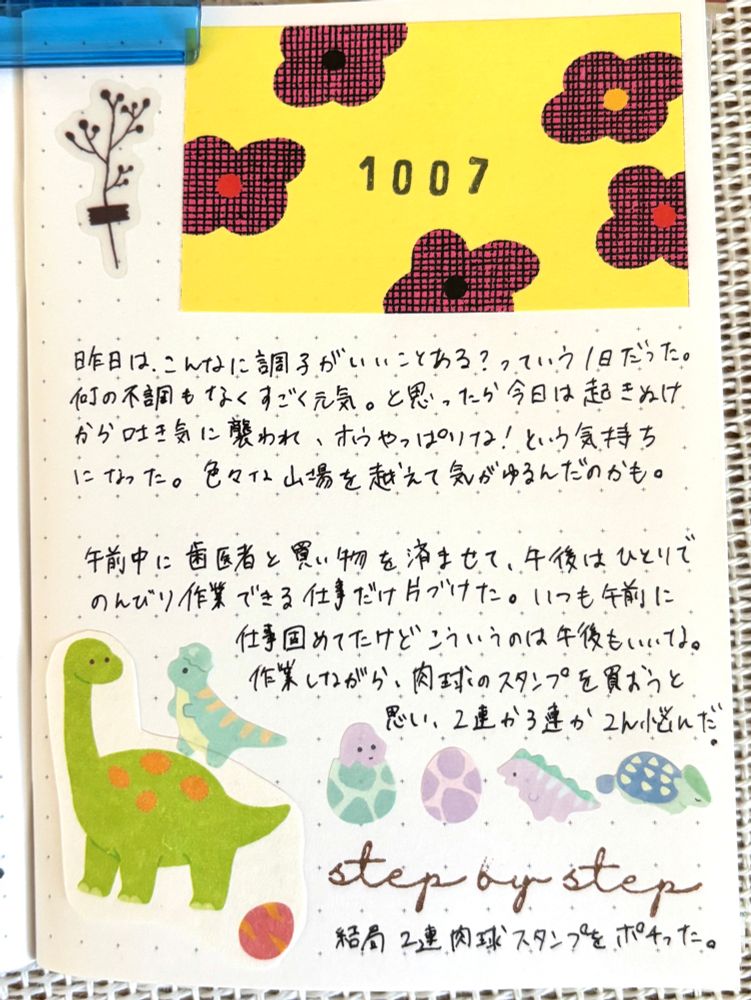 1007
昨日は、こんなに調子がいいことある？っていう1日だった。
何の不調もなくすごく元気。と思ったら今日は起きぬけ
から吐き気に襲われ、ホラやっぱりな！という気持ち
になった。色々な山場を越えて気がゆるんだのかも。
午前中に歯医者と買い物を済ませて、午後はひとりで
のんびり作業できる仕事だけ片づけた。いつも午前に
仕事固めてたけどこういうのは午後もいいな。
作業しながら、肉球のスタンプを買おうと
思い、2連か3連か 悩んだ。
step by step
結局 2連肉球スタンプをポチった。